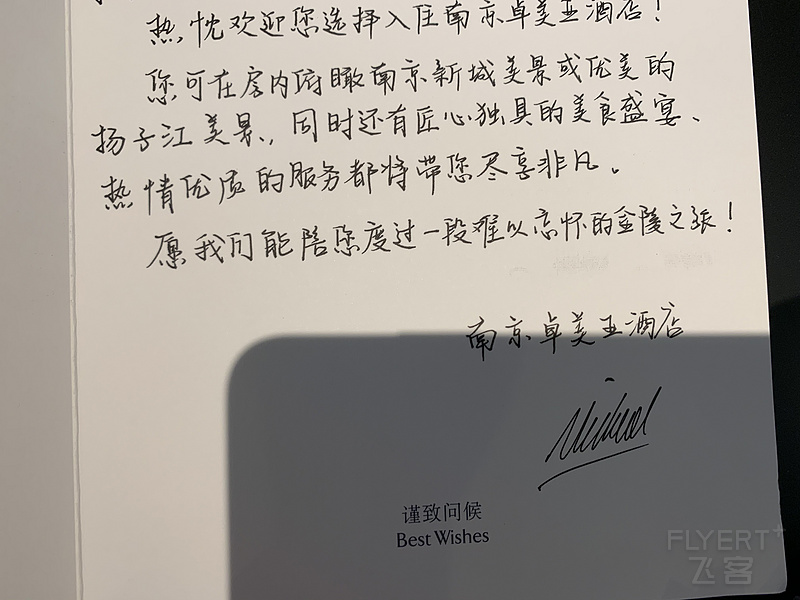 热忱欢迎您选择入住南京卓美亚酒店！
您可在房内俯瞰南京新城美景或优美的
扬子江美景，同时还有匠心独具的美食盛宴、
热情优质的服务都将带您尽享非凡。
愿我们能陪您度过一段难以忘怀的金陵之旅！
南京卓美亚酒店
谨致问候
Best Wishes
FLYERT+
飞客